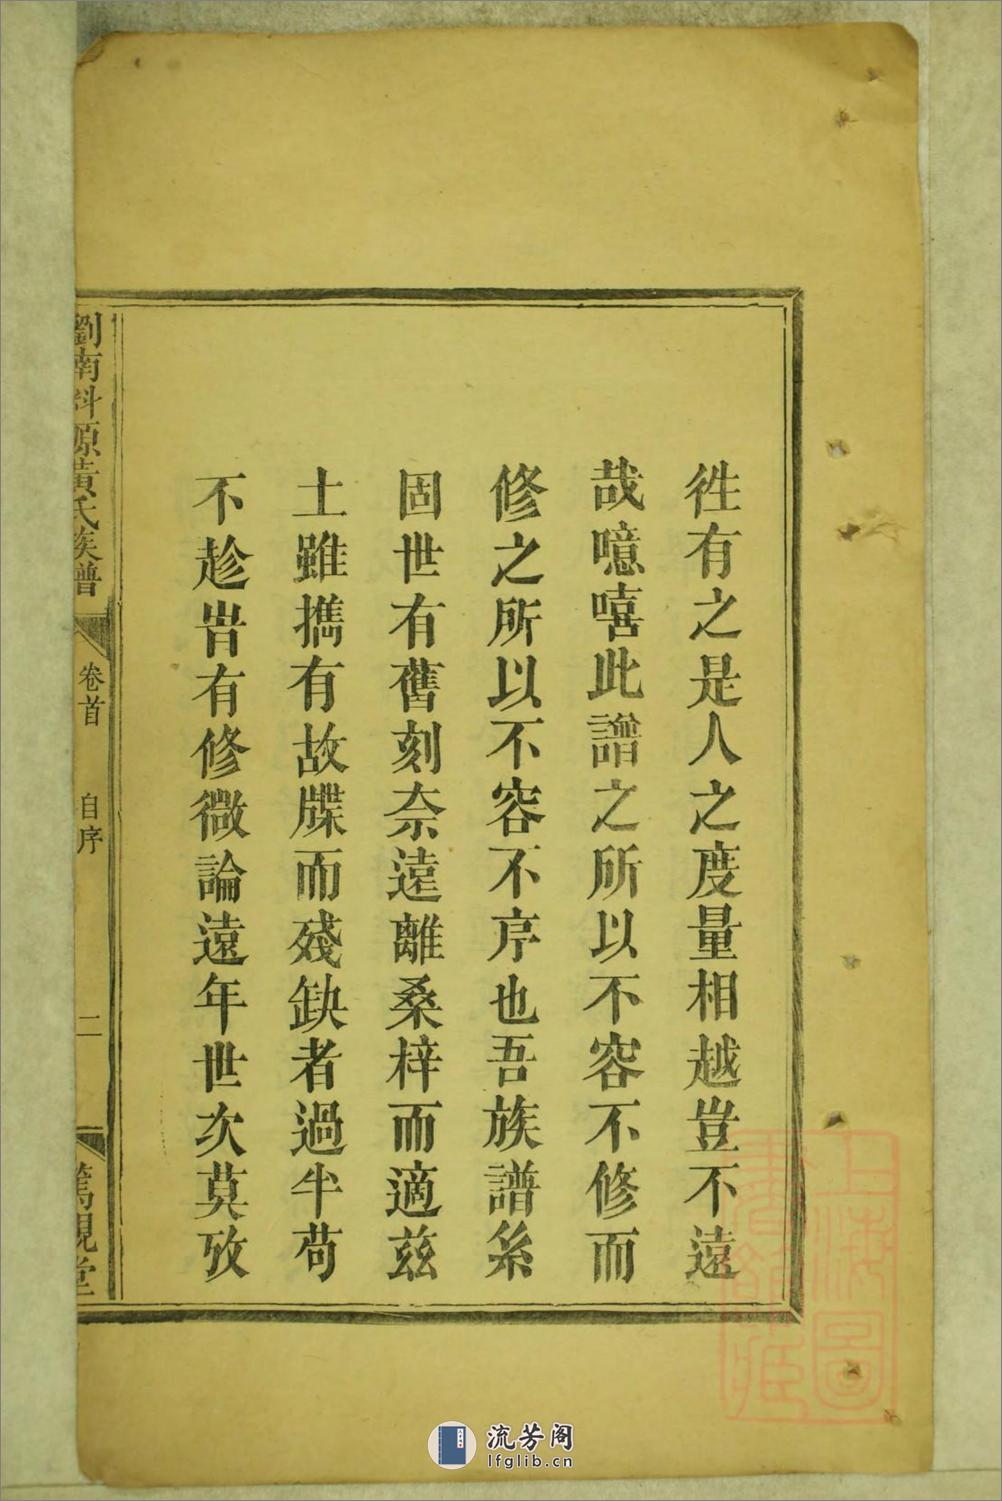 徃有之是人之度量相越豈不遠
哉噫嘻此譜之所以不容不修而
修之所以不容不序也吾族譜系
固世有舊刻奈遠離桑梓而適茲
土雖擕有故牒而殘缺者過半苟
不趁旹有修微論遠年世次莫攷
劉南科源黃氏族譜
卷首
自序
二
篤親堂
上海圖
書館藏
流芳阁
lfglib.cn